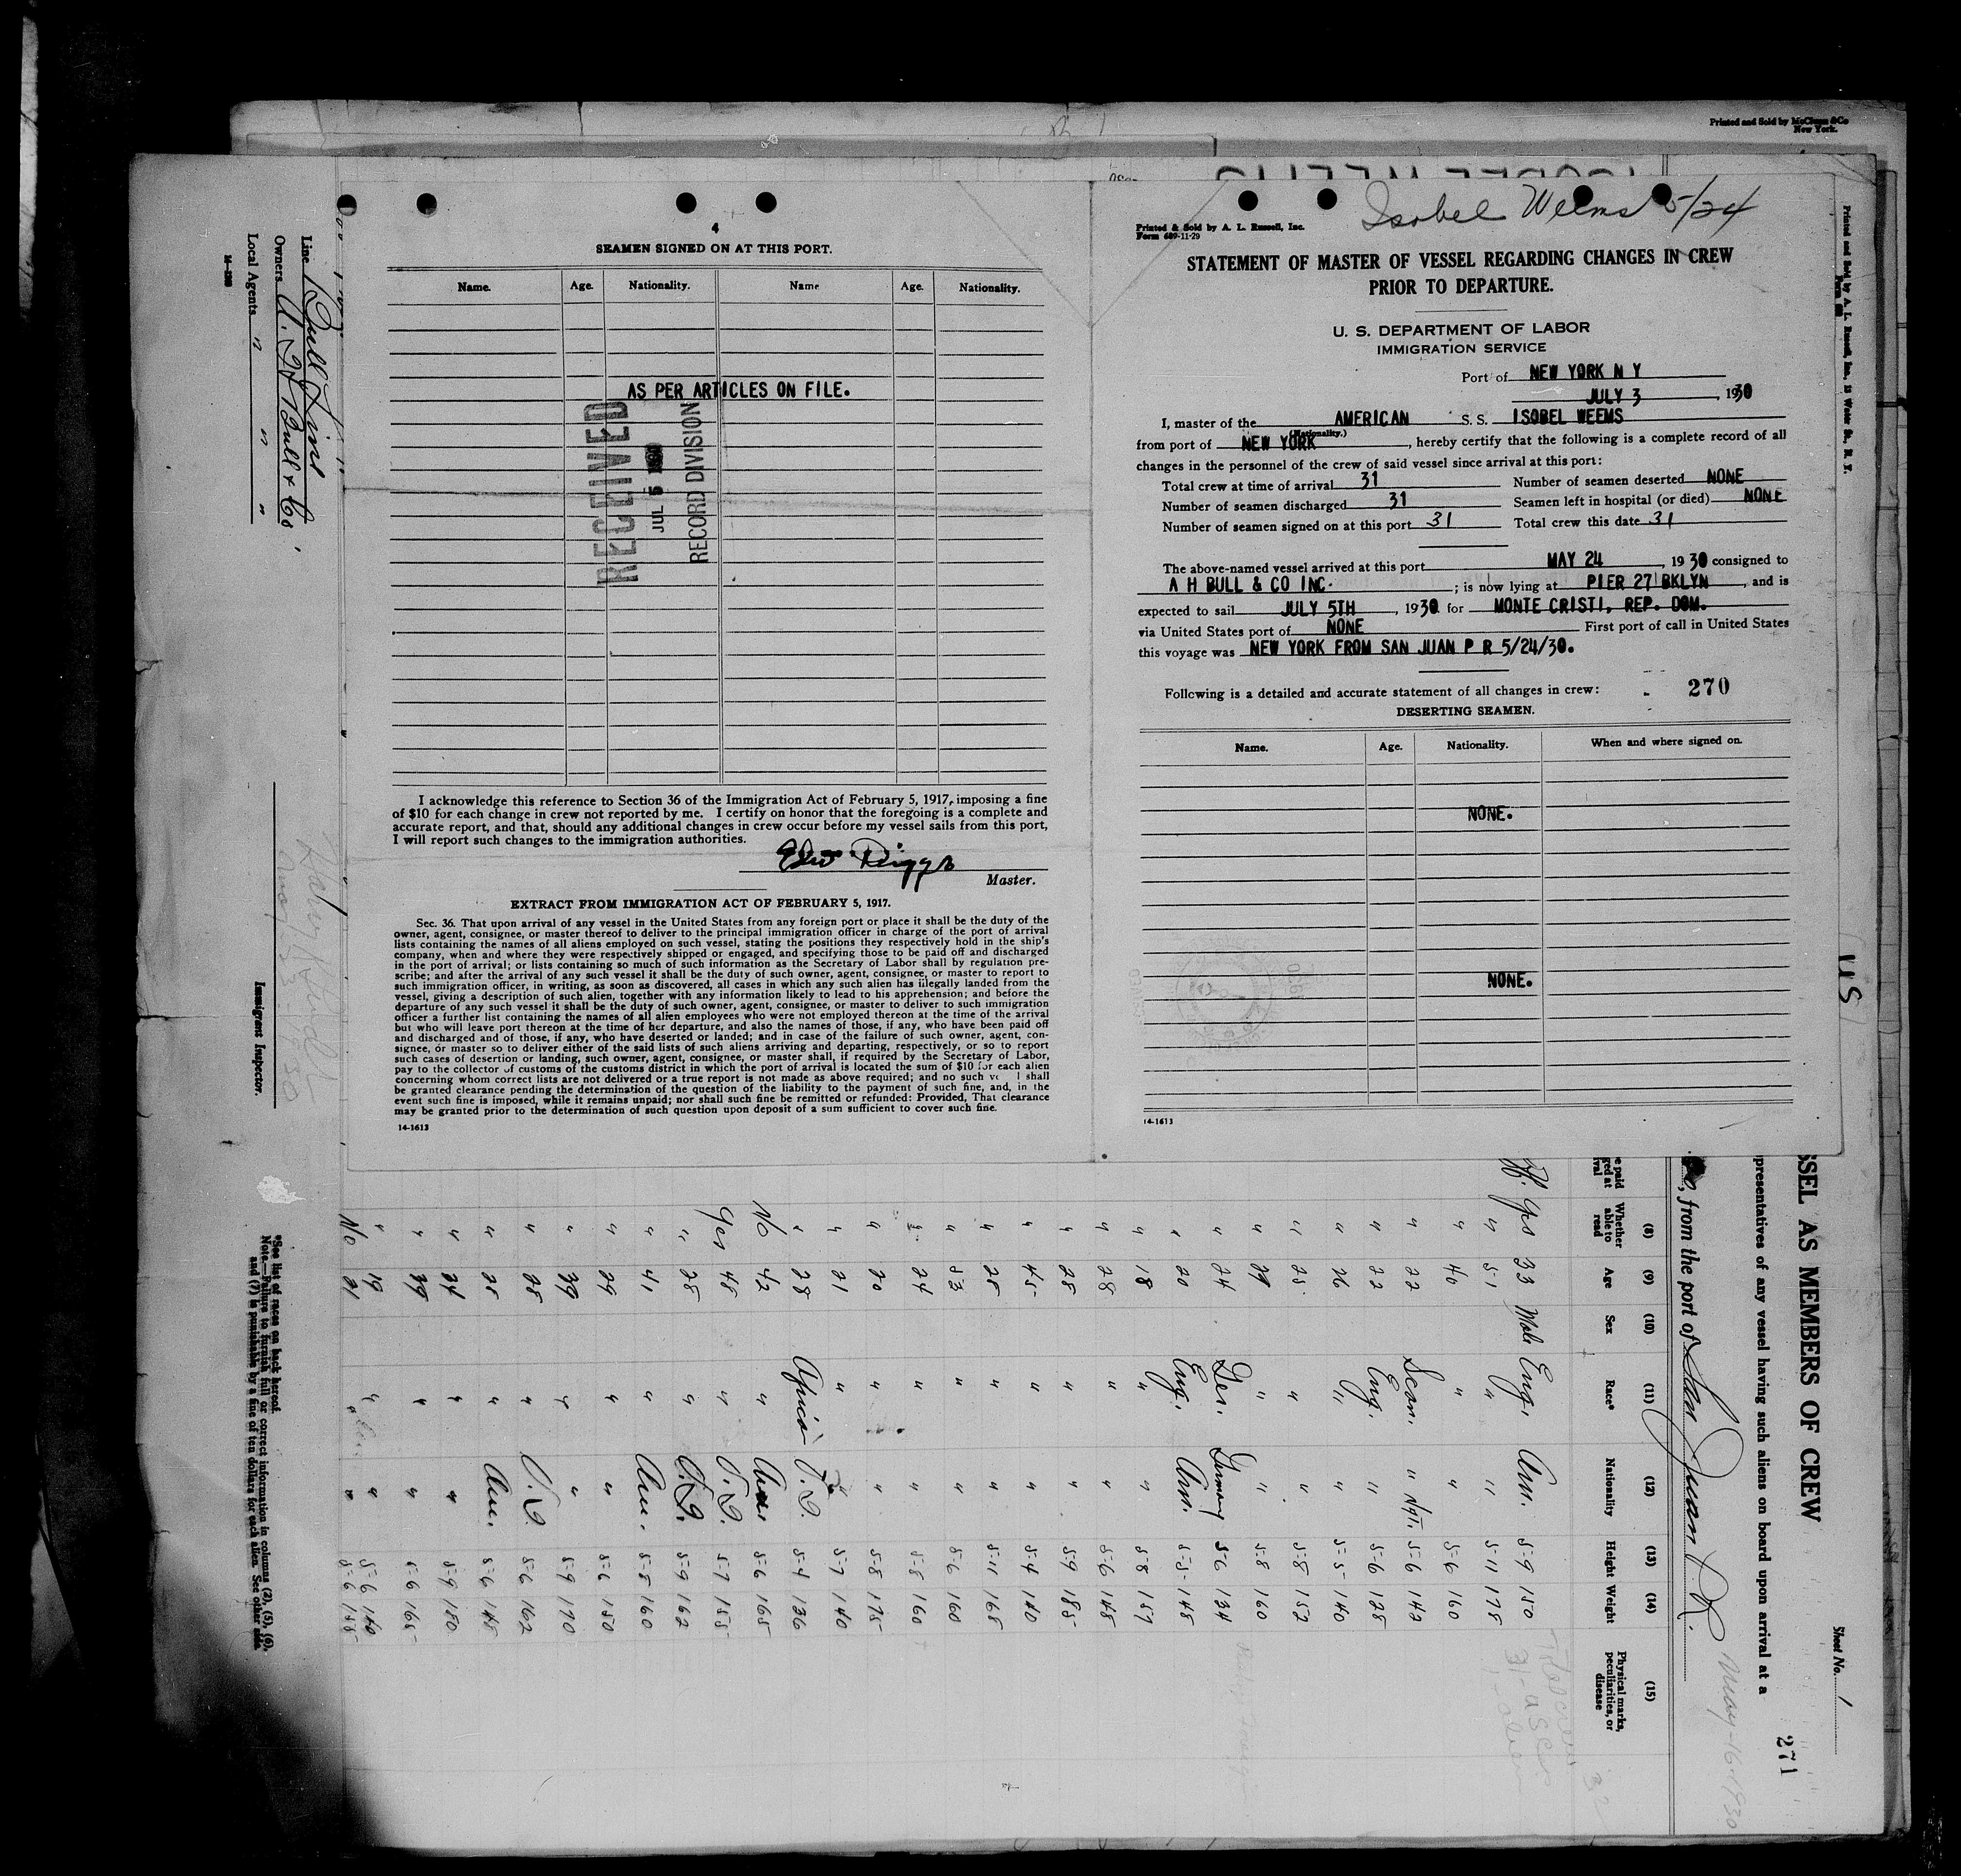 Printed and Sold by McClunn &Co
New York.
4
SEAMEN SIGNED ON AT THIS PORT.
Name. Age. Nationality. Name Age. Nationality.
AS PER ARTICLES ON FILE.
RECEIVED
JUL 5 1930
RECORD DIVISION
I acknowledge this reference to Section 36 of the Immigration Act of February 5, 1917, imposing a fine
of $10 for each change in crew not reported by me. I certify on honor that the foregoing is a complete and
accurate report, and that, should any additional changes in crew occur before my vessel sails from this port,
I will report such changes to the immigration authorities.
Edw Riggs
Master.
EXTRACT FROM IMMIGRATION ACT OF FEBRUARY 5, 1917.
Sec. 36. That upon arrival of any vessel in the United States from any foreign port or place it shall be the duty of the
owner, agent, consignee, or master thereof to deliver to the principal immigration officer in charge of the port of arrival
lists containing the names of all aliens employed on such vessel, stating the positions they respectively hold in the ship's
company, when and where they were respectively shipped or engaged, and specifying those to be paid off and discharged
in the port of arrival; or lists containing so much of such information as the Secretary of Labor shall by regulation pre-
scribe; and after the arrival of any such vessel it shall be the duty of such owner, agent, consignee, or master to report to
such immigration officer, in writing, as soon as discovered, all cases in which any such alien has illegally landed from the
vessel, giving a description of such alien, together with any information likely to lead to his apprehension; and before the
departure of any such vessel it shall be the duty of such owner, agent, consignee, or master to deliver to such immigration
officer a further list containing the names of all alien employees who were not employed thereon at the time of the arrival
but who will leave port thereon at the time of her departure, and also the names of those, if any, who have been paid off
and discharged and of those, if any, who have deserted or landed; and in case of the failure of such owner, agent, con-
signee, or master so to deliver either of the said lists of such aliens arriving and departing, respectively, or so to report
such cases of desertion or landing, such owner, agent, consignee, or master shall, if required by the Secretary of Labor,
pay to the collector of customs of the customs district in which the port of arrival is located the sum of $10 for each alien
concerning whom correct lists are not delivered or a true report is not made as above required; and no such ve l shall
be granted clearance pending the determination of the question of the liability to the payment of such fine, and, in the
event such fine is imposed, while it remains unpaid; nor shall such fine be remitted or refunded: Provided, That clearance
may be granted prior to the determination of such question upon deposit of a sum sufficient to cover such fine.
14-1613
Isobel Weems 5/24
Printed & Sold by A. L. Russell, Inc.
Form 689-11-29
STATEMENT OF MASTER OF VESSEL REGARDING CHANGES IN CREW
PRIOR TO DEPARTURE.
U. S. DEPARTMENT OF LABOR
IMMIGRATION SERVICE
Port of NEW YORK N Y
JULY 3, 1930
I, master of the AMERICAN S. S. ISOBEL WEEMS
(Nationality.)
from port of NEW YORK, hereby certify that the following is a complete record of all
changes in the personnel of the crew of said vessel since arrival at this port:
Total crew at time of arrival 31 Number of seamen deserted NONE
Number of seamen discharged 31 Seamen left in hospital (or died) NONE
Number of seamen signed on at this port 31 Total crew this date 31
The above-named vessel arrived at this port MAY 24, 1930 consigned to
A H BULL & CO INC. ; is now lying at PIER 27 BKLYN, and is
expected to sail JULY 5TH, 1930 for MONTE CRISTI, REP. DOM.
via United States port of NONE First port of call in United States
this voyage was NEW YORK FROM SAN JUAN P R 5/24/30.
Following is a detailed and accurate statement of all changes in crew: 270
DESERTING SEAMEN.
Name. Age. Nationality. When and where signed on.
NONE.
NONE.
14-1613
Line Bull Line
Owners A. H. Bull & Co
Local Agents " " "
Immigrant Inspector.
*See list of races on back hereof.
Note.—Failure to furnish full or correct information in columns (2), (5), (6),
and (7) is punishable by a fine of ten dollars for each alien. See other side.
Printed and Sold by A. L. Russell, Inc.
Sheet No. 1
271
SSEL AS MEMBERS OF CREW
presentatives of any vessel having such aliens on board upon arrival at a
, from the port of San Juan P.R. May-16-1930
(8) (9) (10) (11) (12) (13) (14) (15)
Whether able to read Age Sex Race* Nationality Height Weight Physical marks, peculiarities, or disease
Yes 33 Male Eng. Am. 5-9 150
" 51 " " 5-11 178
" 40 " " 5-6 160
" 22 Scan. " Nat. 5-6 142
" 22 Eng. " 5-6 128
" 26 " " 5-5 140
" 25 " " 5-8 152
" 39 " " 5-8 160
" 24 Ger. Germany 5-6 134
" 20 Eng. Am. 5-5 148
" 18 " " 5-8 157
" 28 " " 5-6 148
" 28 " " 5-9 185
" 45 " " 5-4 140
" 28 " " 5-11 168
" 53 " " 5-6 160
" 24 " " 5-8 160
" 20 " " 5-8 175
" 21 " " 5-7 140
" 28 African 5-4 136
No 42 " 5-6 165
Yes 48 " 5-7 155
" 28 " 5-9 162
" 41 " Am. 5-8 160
" 29 " " 5-6 150
" 39 " " 5-9 170
" 28 " 5-6 162
" 25 " Am. 5-6 148
" 34 " " 5-9 180
" 39 " " 5-6 165
" 19 " " 5-6 140
No 21 " " 5-6 155